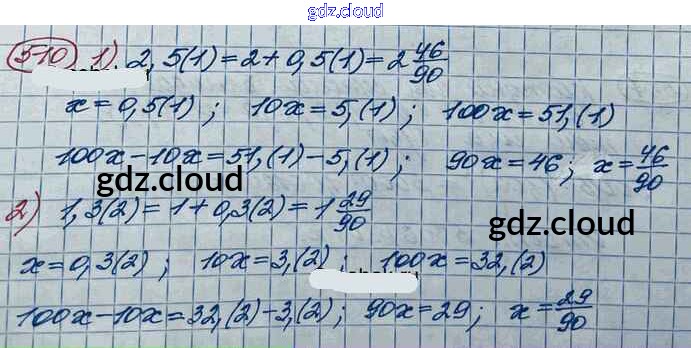 gdz.cloud
510 1) 2,5(1)=2+0,5(1)=2 46/90
x=0,5(1); 10x=5,(1); 100x=51,(1)
100x-10x=51,(1)-5,(1); 90x=46; x=46/90
gdz.cloud
2) 1,3(2)=1+0,3(2)=1 29/90
gdz.cloud
x=0,3(2); 10x=3,(2); 100x=32,(2)
100x-10x=32,(2)-3,(2); 90x=29; x=29/90